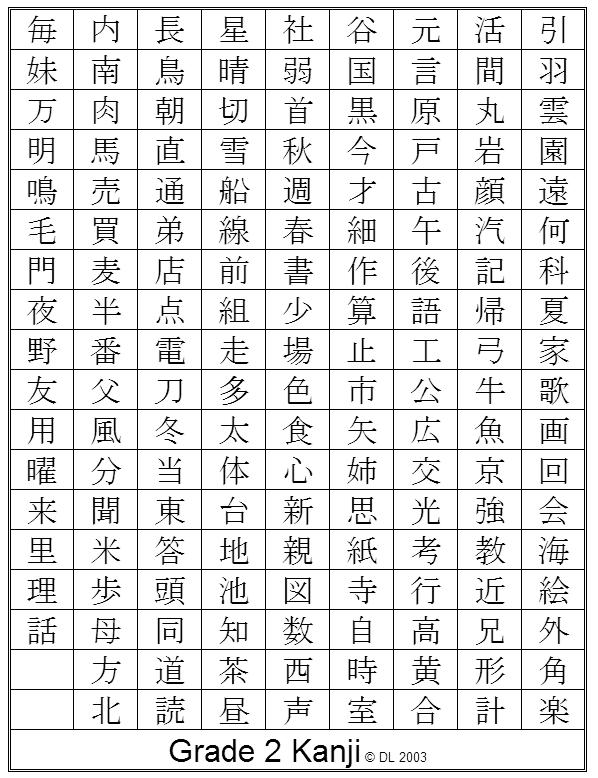 引羽雲園遠何科夏家歌画回会海絵外角楽
活間丸岩顔汽記帰弓牛魚京強教近兄形計
元言原戸古午後語工公広交光考行高黄合
谷国黒今才細作算止市矢姉思紙寺自時室
社弱首秋週春書少場色食心新親図数西声
星晴切雪船線前組走多太体台地池知茶昼
長鳥朝直通弟店点電刀冬当東答頭同道読
内南肉馬売買麦半番父風分聞米歩母方北
毎妹万明鳴毛門夜野友用曜来里理話
Grade 2 Kanji © DL 2003